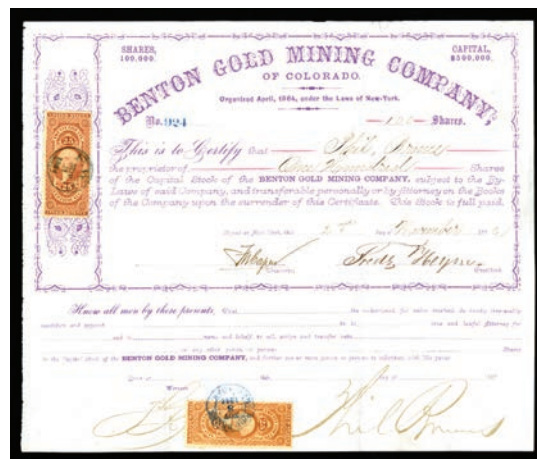 SHARES,
100,000.
CAPITAL,
$500,000.
BENTON GOLD MINING COMPANY,
OF COLORADO.
Organized April, 1864, under the Laws of New-York.
No. 924
100 Shares.
This is to Certify that Phil.
the proprietor of One Hundred Shares
of the Capital Stock of the BENTON GOLD MINING COMPANY, subject to the By-
Laws of said Company, and transferable personally or by Attorney on the Books
of the Company upon the surrender of this Certificate. This Stock is full paid.
day of November 186
Know all men by these presents, that
value received do hereby irrevocably
constitute and appoint
to be true and lawful Attorney for
and in name and behalf to sell assign and transfer unto
or any other person or persons Shares
in the Capital Stock of the BENTON GOLD MINING COMPANY, and further one or more person or persons to substitute with like power
Witness
Phil